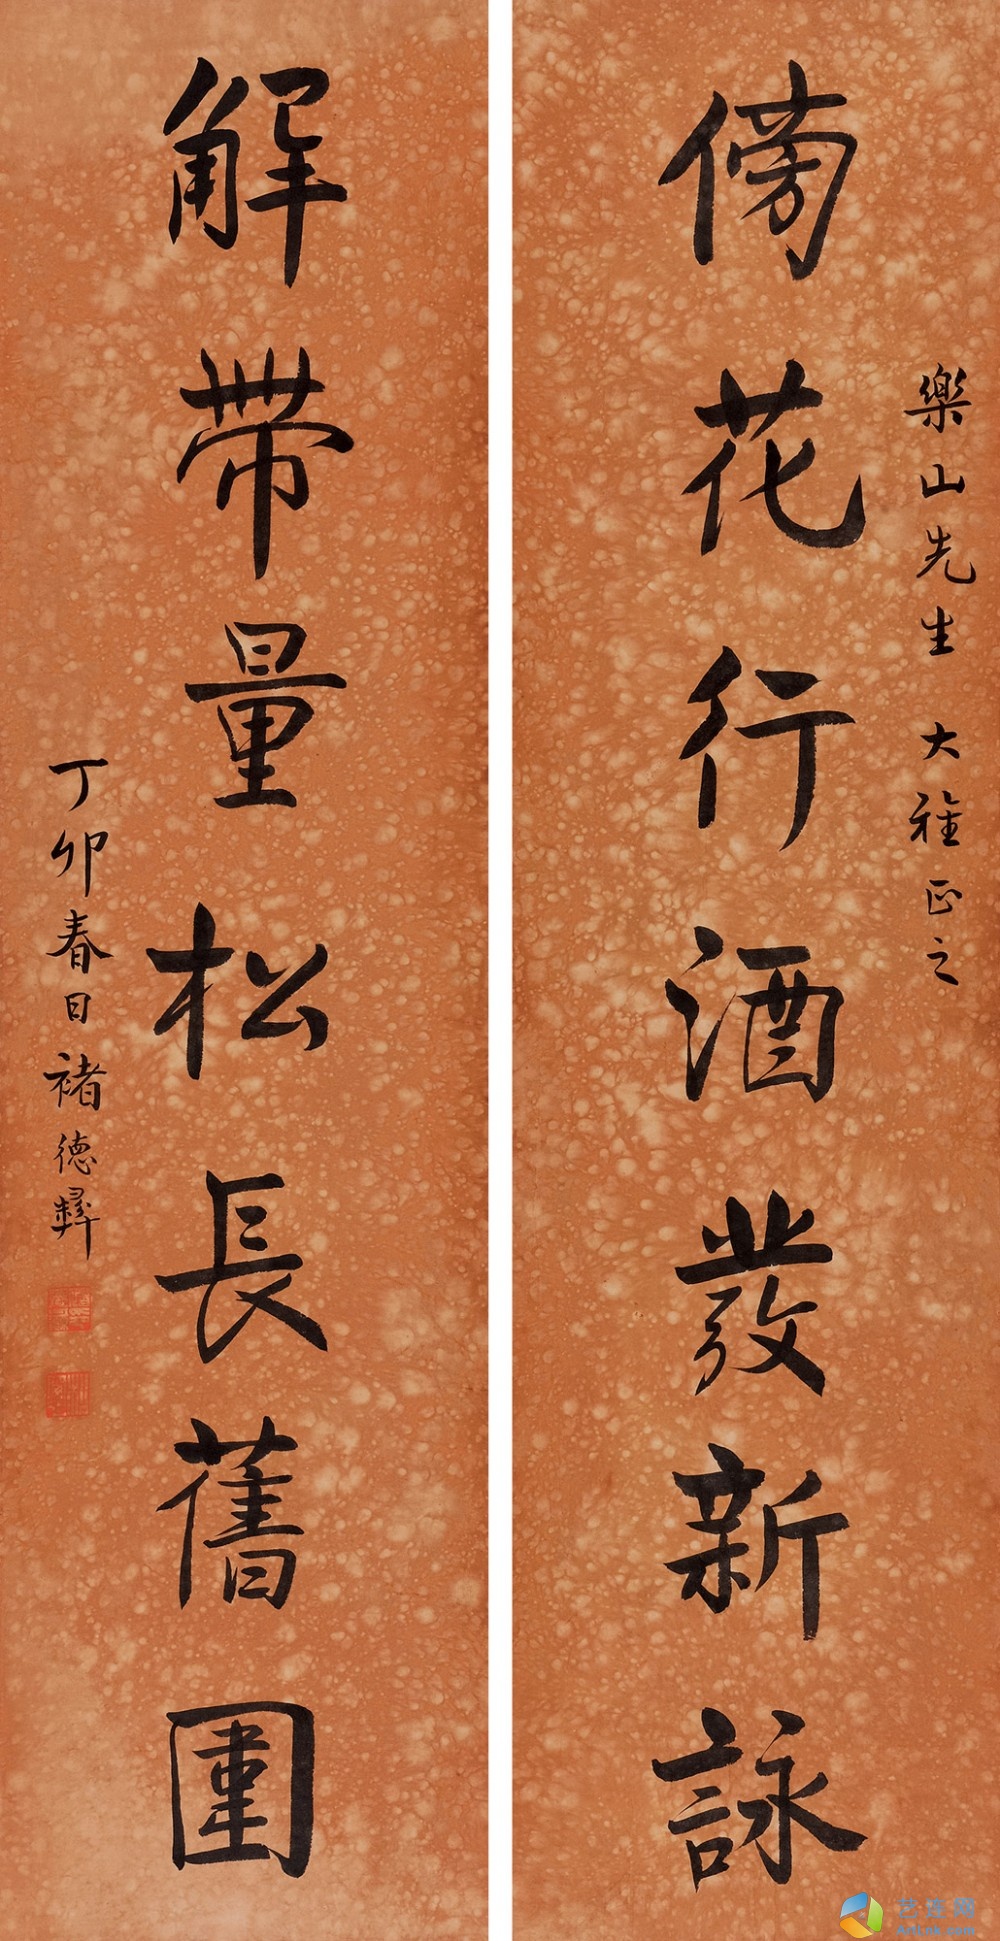 樂山先生 大雅正之
傍花行酒發新詠
解帶量松長舊圍
丁卯春日褚德彝
艺连网